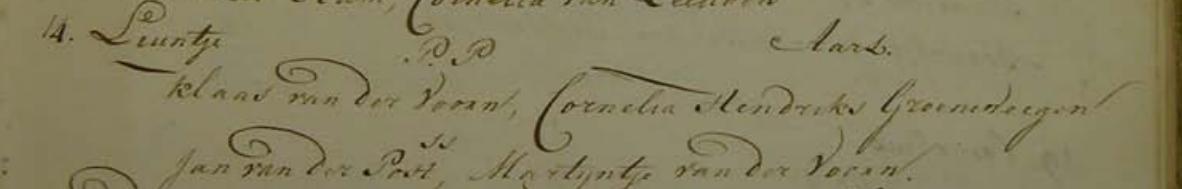 Cornelia van Leeuwen
14. Leuntje P.P Aarl.
Klaas van der Voorn, Cornelia Hendriks Groenewegen
ss
Jan van der Post, Martyntje van der Voorn.